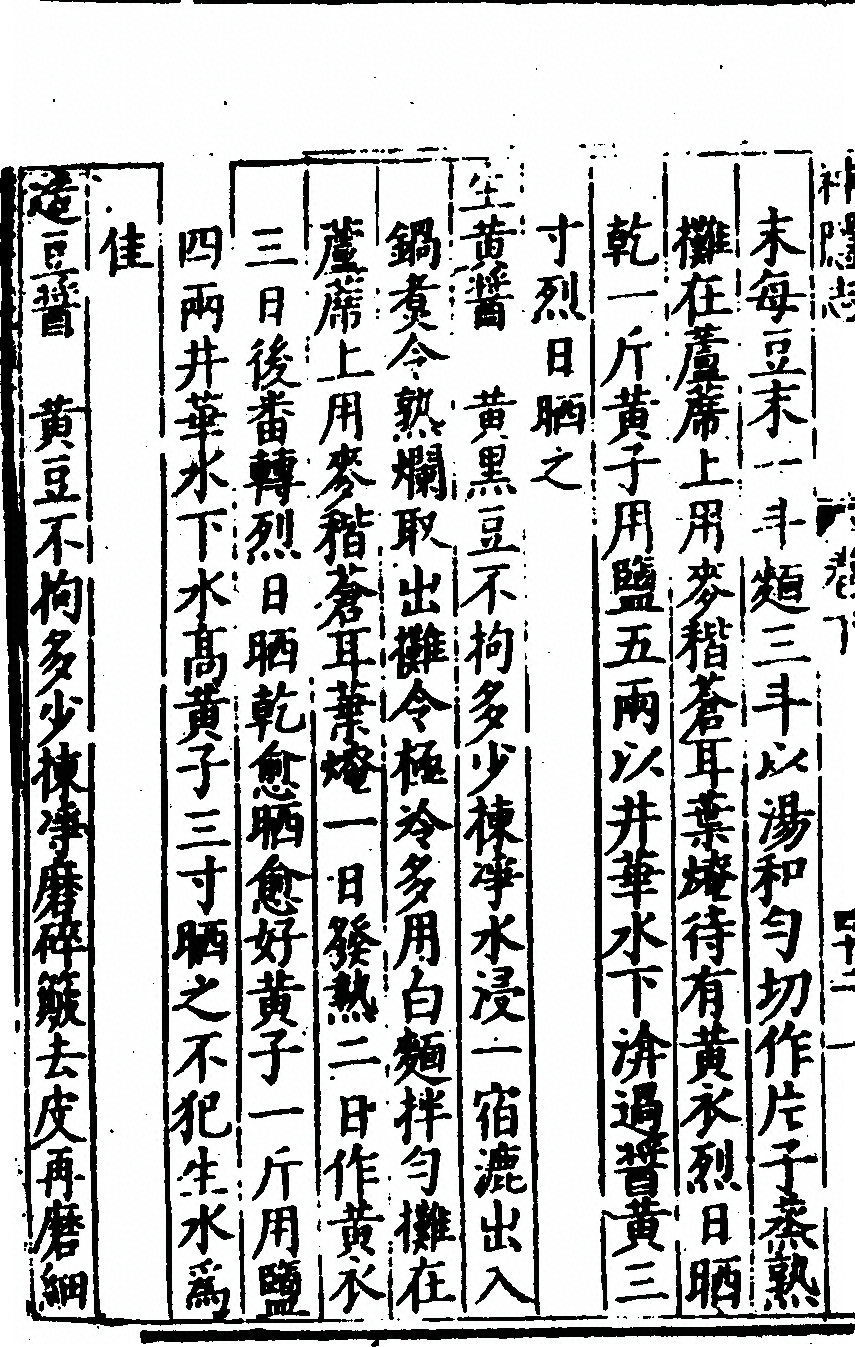 末每豆末一斗麵三斗以湯和勻切作片子蒸熟
攤在蘆蓆上用麥稭蒼耳葉罨待有黃衣烈日晒
乾一斤黃子用鹽五兩以井華水下渰過醬黃三
寸烈日晒之
生黃醬　黃黑豆不拘多少揀凈水浸一宿漉出入
鍋煑令熟爛取出攤令極冷多用白麵拌勻攤在
蘆蓆上用麥稭蒼耳葉罨一日發熱二日作黃衣
三日後番轉烈日晒乾愈晒愈好黃子一斤用鹽
四兩井華水下水高黃子三寸晒之不犯生水為
佳
造豆醬　黃豆不拘多少揀凈磨碎簸去皮再磨細